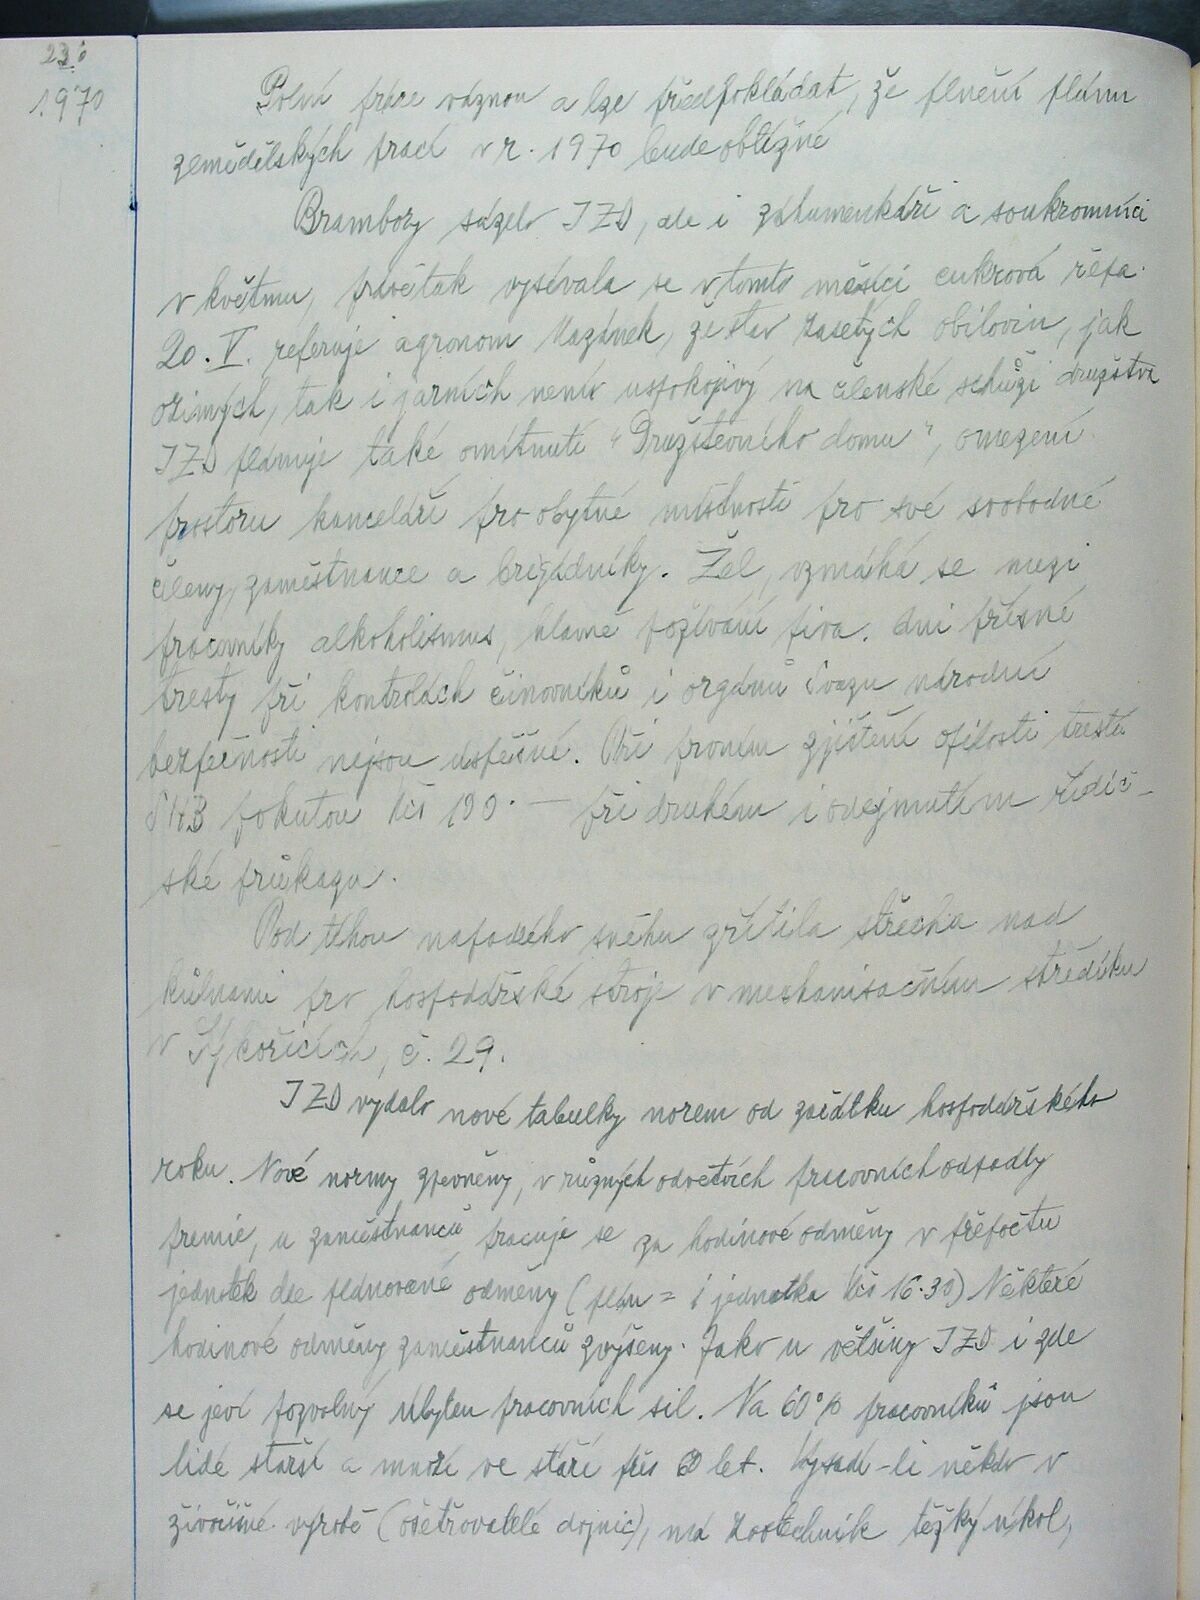 1970
Polní práce váznou a lze předpokládat, že plnění plánu
zemědělských prací v r. 1970 bude obtížné
Brambory sázelo JZD, ale i záhumenkáři a soukromníci
v květnu, právě tak vysévala se v tomto měsíci cukrová řepa.
20. V. referuje agronom Mazánek, že stav zasetých obilovin, jak
ozimých, tak i jarních není uspokojivý na členské schůzi družstva
JZD plánuje také omítnutí "Družstevního domu", omezení
prostoru kanceláří pro obytné místnosti pro své svobodné
členy, zaměstnance a brigádníky. Žel, vzmáhá se mezi
pracovníky alkoholismus, hlavně požívání piva. Ani přísné
tresty při kontrolách činovníků i orgánů Svazu národní
bezpečnosti nejsou úspěšné. Při prvním zjištění opilosti trestá
SNB pokutou Kčs 100.— při druhém i odejmutím řidič-
ské průkazu.
Pod tíhou napadlého sněhu zřítila střecha nad
kůlnami pro hospodářské stroje v mechanisačním středisku
v Sýkořicích, č. 29.
JZD vydalo nové tabulky norem od začátku hospodářského
roku. Nové normy zpevněny, v různých odvětvích pracovních odpadly
premie, u zaměstnanců pracuje se za hodinové odměny v přepočtu
jednotek dle plánované odměny (plán = 1 jednotka Kčs 16.30) Některé
hodinové odměny zaměstnanců zvýšeny. Jako u většiny JZD i zde
se jeví pozvolný úbytek pracovních sil. Na 60% pracovníků jsou
lidé starší a mnozí ve stáří přes 60 let. Vysadí-li někdo v
živočišné výrobě (ošetřovatelé dojnic), má zootechnik těžký úkol,